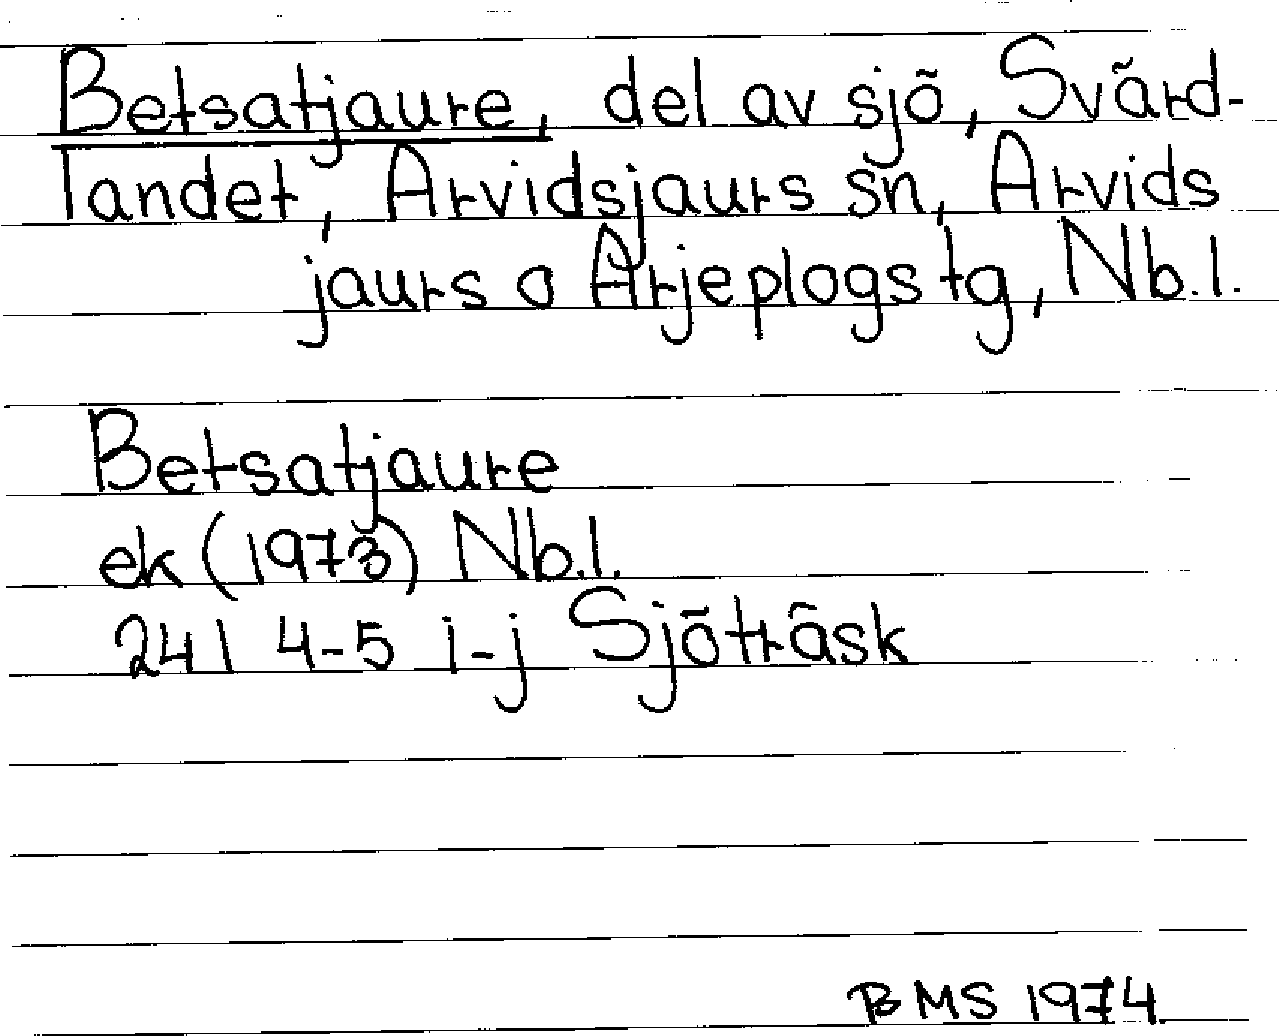 Betsatjaure, del av sjö, Svärd-
landet, Arvidsjaurs sn, Arvids
jaurs o Arjeplogs tg, Nb.l.
Betsatjaure
ek (1973) Nb.l.
24I 4-5 i-j Sjöträsk
BMS 1974.